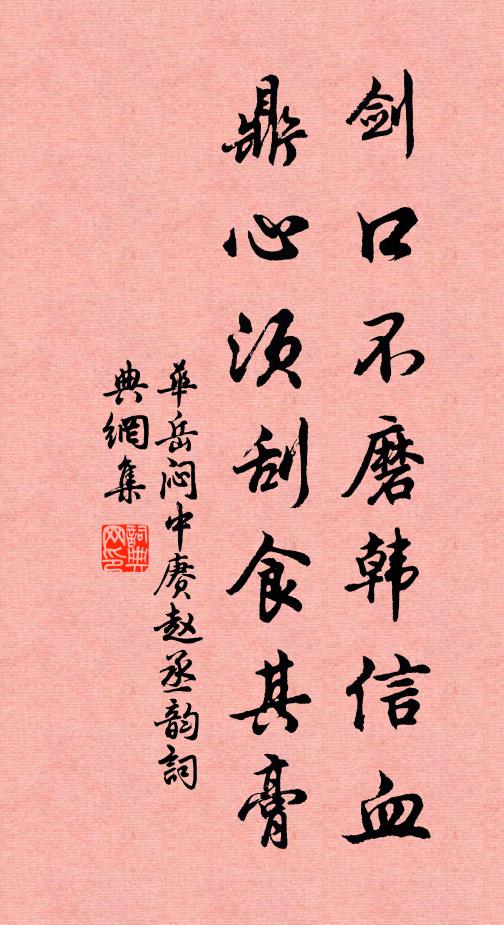 剑口不磨韩信血
鼎心须刮食其膏
华岳闷中赓赵丞韵词
典網集
詞典
网印